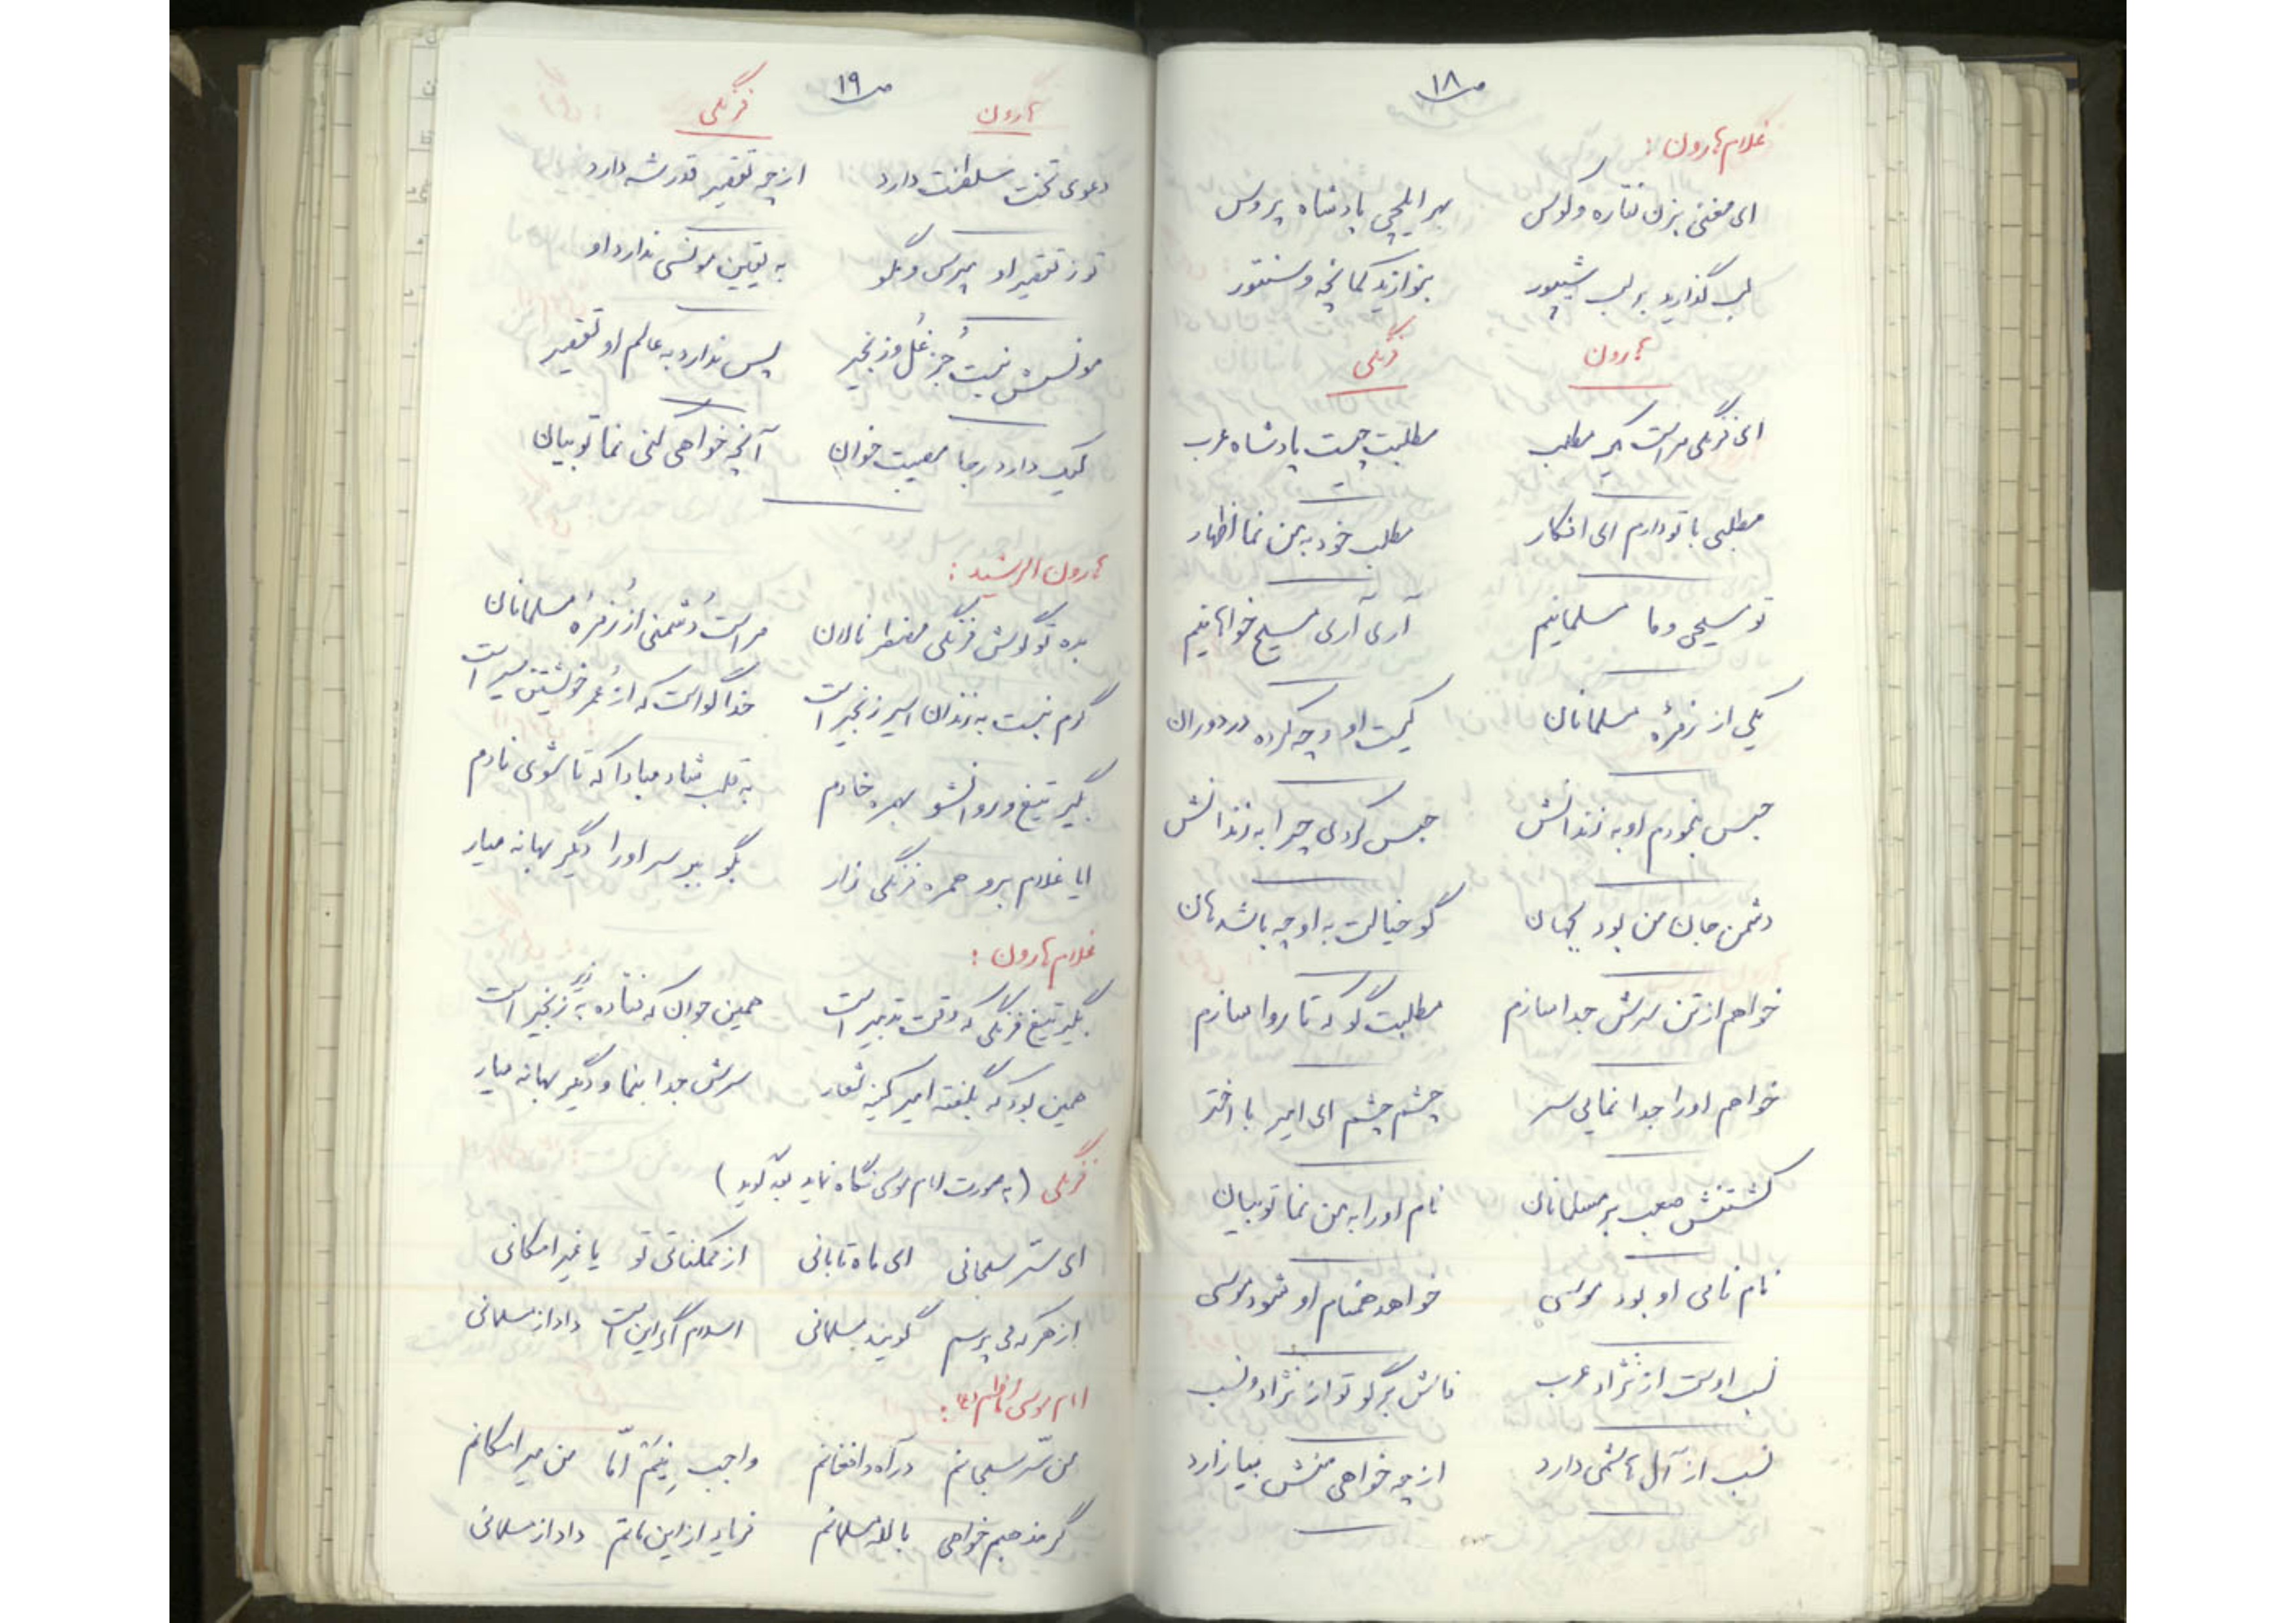 ص ۱۸
غلام هارون :
ای مغنی بزن نقاره و کوس    بهر ایلچی پادشاه پروس
لب گذارید بر لب شیپور    بنوازید کمانچه و سنتور
هارون    فرنگی
ای فرنگی مراست یک مطلب    مطلبت چیست پادشاه عرب
مطلبی با تو دارم ای افکار    مطلب خود به من نما اظهار
تو مسیحی و ما مسلمانیم    آری آری مسیح خواهانیم
یکی از زمرهٔ مسلمانان    کیست او و چه کرده در دوران
حبس بنمودم او به زندانش    حبس کردی چرا به زندانش
دشمن جان من بود بجهان    گو خیالت به او چه باشد هان
خواهم از تن سرش جدا سازم    مطلبت گو که تا روا سازم
خواهم او را جدا نمایی سر    چشم چشم ای امیر با اختر
کشتنش صعب بر مسلمانان    نام او را به من نما تو بیان
نام نامی او بود موسی    خواهد همنام او شود موسی
نسب اوست از نژاد عرب    فاش برگو تو از نژاد و نسب
نسب از آل هاشمی دارد    از چه خواهی منش بیازارد
ص ۱۹
هارون    فرنگی
دعوی تخت سلطنت دارد    از چه تقصیر قدر شه دارد
تو ز تقصیر او مپرس و مگو    به یقین مونسی ندارد او
مونسش نیست جز غُل و زنجیر    پس ندارد به عالم او تقصیر
لیک دارد رجا مصیبت خوان    آنچه خواهی کنی نما تو بیان
هارون الرشید :
بده تو گوش فرنگی مضطر نالان    مراست دُشمنی از زُمرهٔ مسلمانان
گرم نیست به زندان اسیر زنجیر است    خدا گواست که از عُمر خویشتن سیر است
بگیر تیغ و روان شو بهمره خادم    به قلب شاد مبادا که تا شوی نادم
ایا غلام برو همره فرنگی زار    بگو ببر سر او را دگر بهانه میار
غلام هارون :
بگیر تیغ فرنگی که وقت تدبیر است    همین جوان که فتاده به زیر زنجیر است
همین بود که بگفته امیر کینه شعار    سرش جدا بنما و دگر بهانه میار
فرنگی (به صورت امام موسی نگاه نماید بعد گوید)
ای ستر سبحانی    ای ماه تابانی    از ممکناتی تو    یا غیر امکانی
از هر که می پرسم    گویند مسلمانی    اسلام اگر این است    داد از مسلمانی
امام موسی کاظم (ع) :
من سّر سبحانم    در آه و افغانم    واجب نِیَم اّما    من میر امکانم
گر مذهبم خواهی    بالله مسلمانم    فریاد از این ماتم    داد از مسلمانی